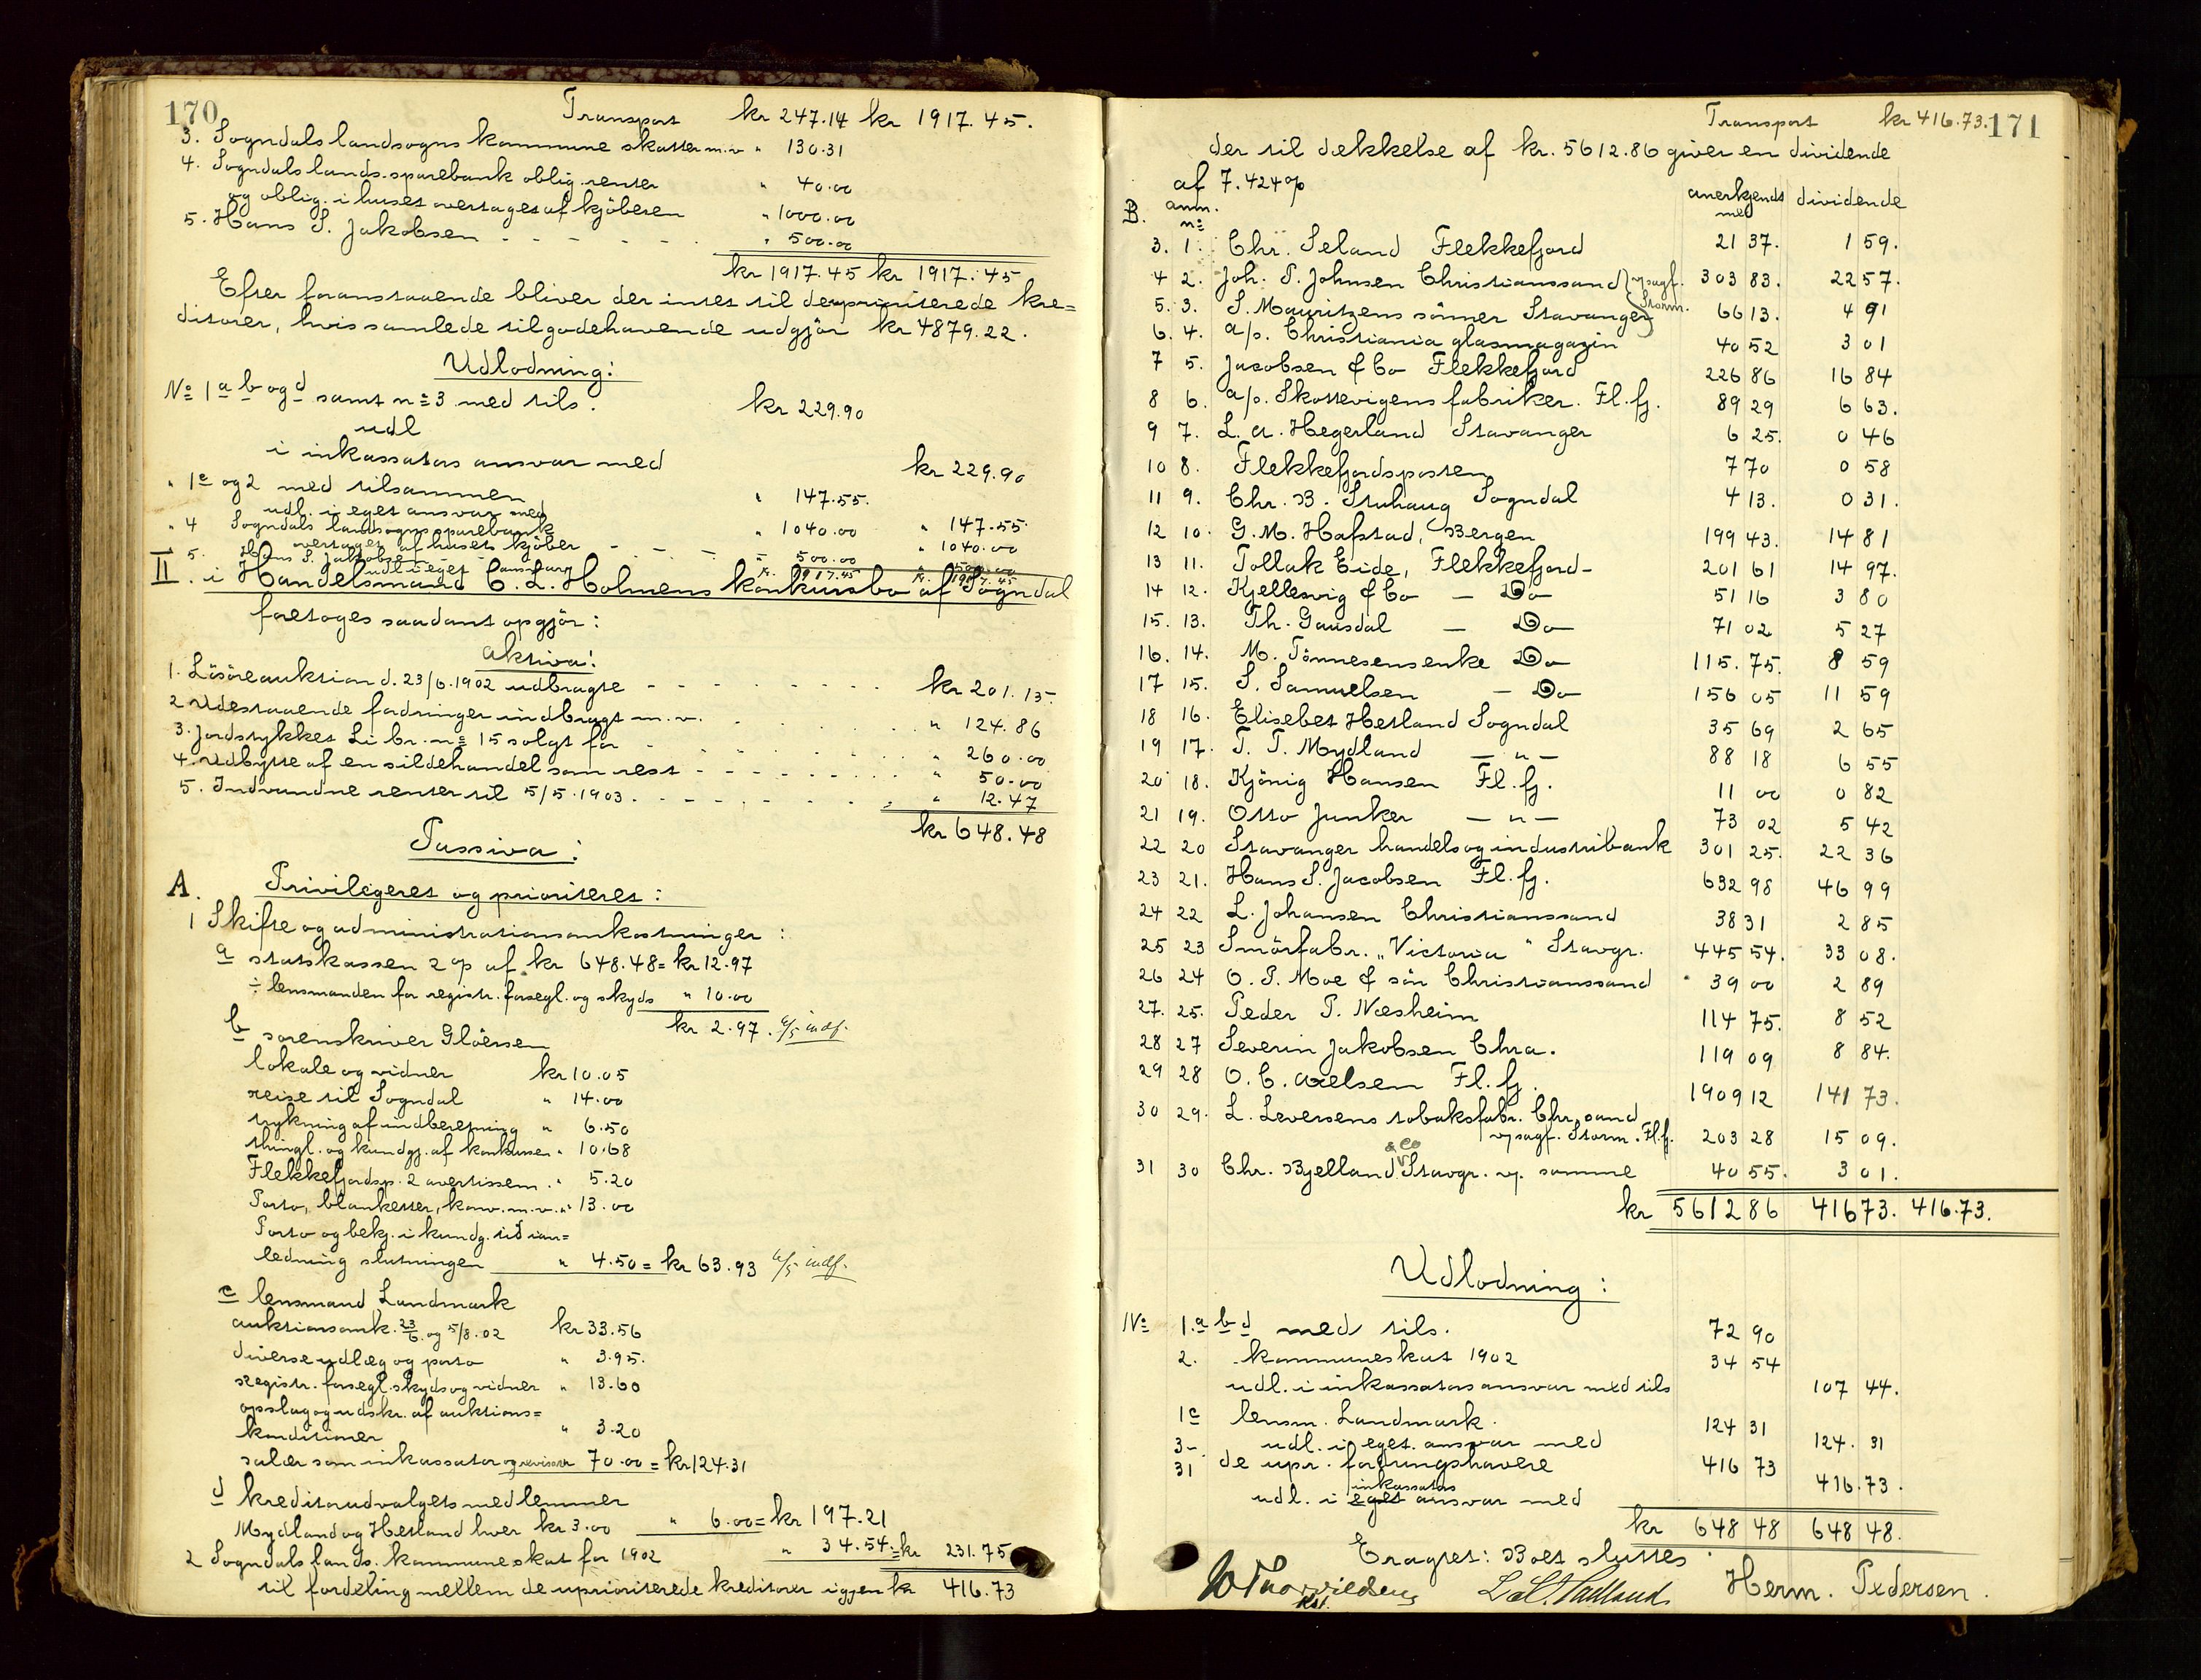 170
Transport kr 247.14 kr 1917.45.
3. Sogndals landsogns kommune skatter m.v " 130.31
4. Sogndals lands. sparebank oblig. renter " 40.00
og oblig. i huset overtaget af kjöberen " 1000.00
5. Hans S. Jakobsen - - - - - " 500.00
kr 1917.45 kr 1917.45
Efter foranstaaende bliver der intet til de uprioriterede kre=
ditorer, hvis samlede tilgodehavende udgjör kr 4879.22.
Udlodning:
No 1 a b og d samt no 3 med tils. kr 229.90
udl
i inkassators ansvar med kr 229.90
" 1c og 2 med tilsammen " 147.55.
udl. i eget ansvar med " 147.55
" 4 Sogndals landsogns sparebank " 1040.00
overtaget af husets kjöber - - - " 1040.00
" 5. Hans S. Jakobsen " 500.00
udl i eget ansvar " 500.00
kr. 1917.45 kr. 1917.45
II. i Handelsmand C. L. Holmens konkursbo af Sogndal
foretoges saadant opgjör:
Aktiva:
1. Lösöreauktion d. 23/6.1902 udbragte - - - - kr 201.15
2 Udestaaende fordringer indbragt m.v. " 124.86
3. Jordstykket Li br. no 15 solgt for " 260.00
4. Udbytte af en sildehandel som rest - - - " 50.00
5. Indvundne renter til 5/5.1903. - - - " 12.47
kr 648.48
Passiva:
A. Privilegeret og prioriteret:
1 Skifte og administrationsomkostninger:
a statskassen 2 % af kr 648.48 = kr 12.97
÷ lensmanden for registr. forsegl. og skyds " 10.00
kr 2.97. 6/5 indf.
b sorenskriver Glöersen
lokale og vidner kr 10.05
reise til Sogndal " 14.00
trykning af indberetning " 6.50
thingl. og kundgj. af konkursen " 10.68
Flekkefjordsp. 2 avertissem. " 5.20
Porto, blanketter, konv. m.v. " 13.00
Porto og bekj. i kundg. tid i an=
ledning slutningen " 4.50 = kr 63.93 6/5 indf.
c lensmand Landmark
auktionsomk. 23/6. og 5/8.02 kr 33.56
diverse udlæg og porto " 3.95.
registr. forsegl. skyds og vidner " 13.60
opslag og udskr. af auktions=
konditioner " 3.20
salær som inkassator og revisor 70.00 = kr 124.31
d kreditorudvalgets medlemmer
Mydland og Hetland hver kr 3.00 " 6.00 = kr 197.21
2 Sogndals lands. kommuneskat for 1902 " 34.54 = kr 231.75
til fordeling mellem de uprioriterede kreditorer igjen kr 416.73
171
Transport kr 416.73.
der til dækkelse af kr. 5612.86 giver en dividende
af 7.424 %
B. anm. no anerkjendt med dividende
3. 1. Chr. Seland Flekkefjord 21 37. 1 59.
4 2. Joh. P. Johnsen Christianssand } v/ sagf. 303 83. 22 57.
5. 3. S. Mauritzens sönner Stavanger } Storm. 66 13. 4 91
6. 4. A/s. Christiania glasmagazin 40 52 3 01
7 5. Jacobsen & Co Flekkefjord 226 86 16 84
8 6. A/s. Skottevigens fabriker. Fl.fj. 89 29 6 63.
9 7. L. A. Hegerland Stavanger 6 25. 0 46
10 8. Flekkefjordsposten 7 70 0 58
11 9. Chr. B. Stuhaug Sogndal 4 13. 0 31.
12 10. G. M. Hafstad, Bergen 199 43. 14 81
13 11. Tollak Eide, Flekkefjord - 201 61 14 97.
14 12. Kjellesvig & Co - Do 51 16 3 80
15. 13. Th. Gausdal - Do 71 02 5 27
16. 14. M. Tönnesens enke Do 115. 75. 8 59
17 15. S. Samuelsen - Do 156 05 11 59
18 16. Elisebet Hetland Sogndal 35 69 2 65
19 17. T. T. Mydland - " - 88 18 6 55
20 18. Kjönig Hansen Fl.fj. 11 00 0 82
21 19. Otto Junker - " - 73 02 5 42
22 20 Stavanger handels og industribank 301 25. 22 36
23 21. Hans S. Jacobsen Fl.fj. 632 98 46 99
24 22 L. Johansen Christianssand 38 31 2 85
25 23 Smörfabr. „Victoria" Stavgr. 445 54. 33 08.
26 24 O. P. Moe & sön Christianssand 39 00 2 89
27. 25. Peder P. Næsheim 114 75. 8 52
28 27 Severin Jakobsen Chra. 119 09 8 84.
29 28 O. C. Axelsen Fl.fj. 1909 12 141 73.
30 29. L. Leversens tobaksfabr. Chr.sand
v/ sagf. Storm. Fl.fj. 203 28 15 09.
31 30 Chr. Bjelland & Co Stavgr. v/. samme 40 55. 3 01.
kr 5612 86 416 73. 416.73.
Udlodning:
No 1. a b d med tils. 72 90
2. kommuneskat 1902 34 54
udl. i inkassators ansvar med tils 107 44.
1c lensm. Landmark. 124 31
udl. i eget. ansvar med 124. 31
3-31 de upr. fordringshavere 416 73
udl. i eget inkassators ansvar med 416.73.
kr 648 48 648 48.
Eragtet: Boet sluttes.
Herm. Pedersen.